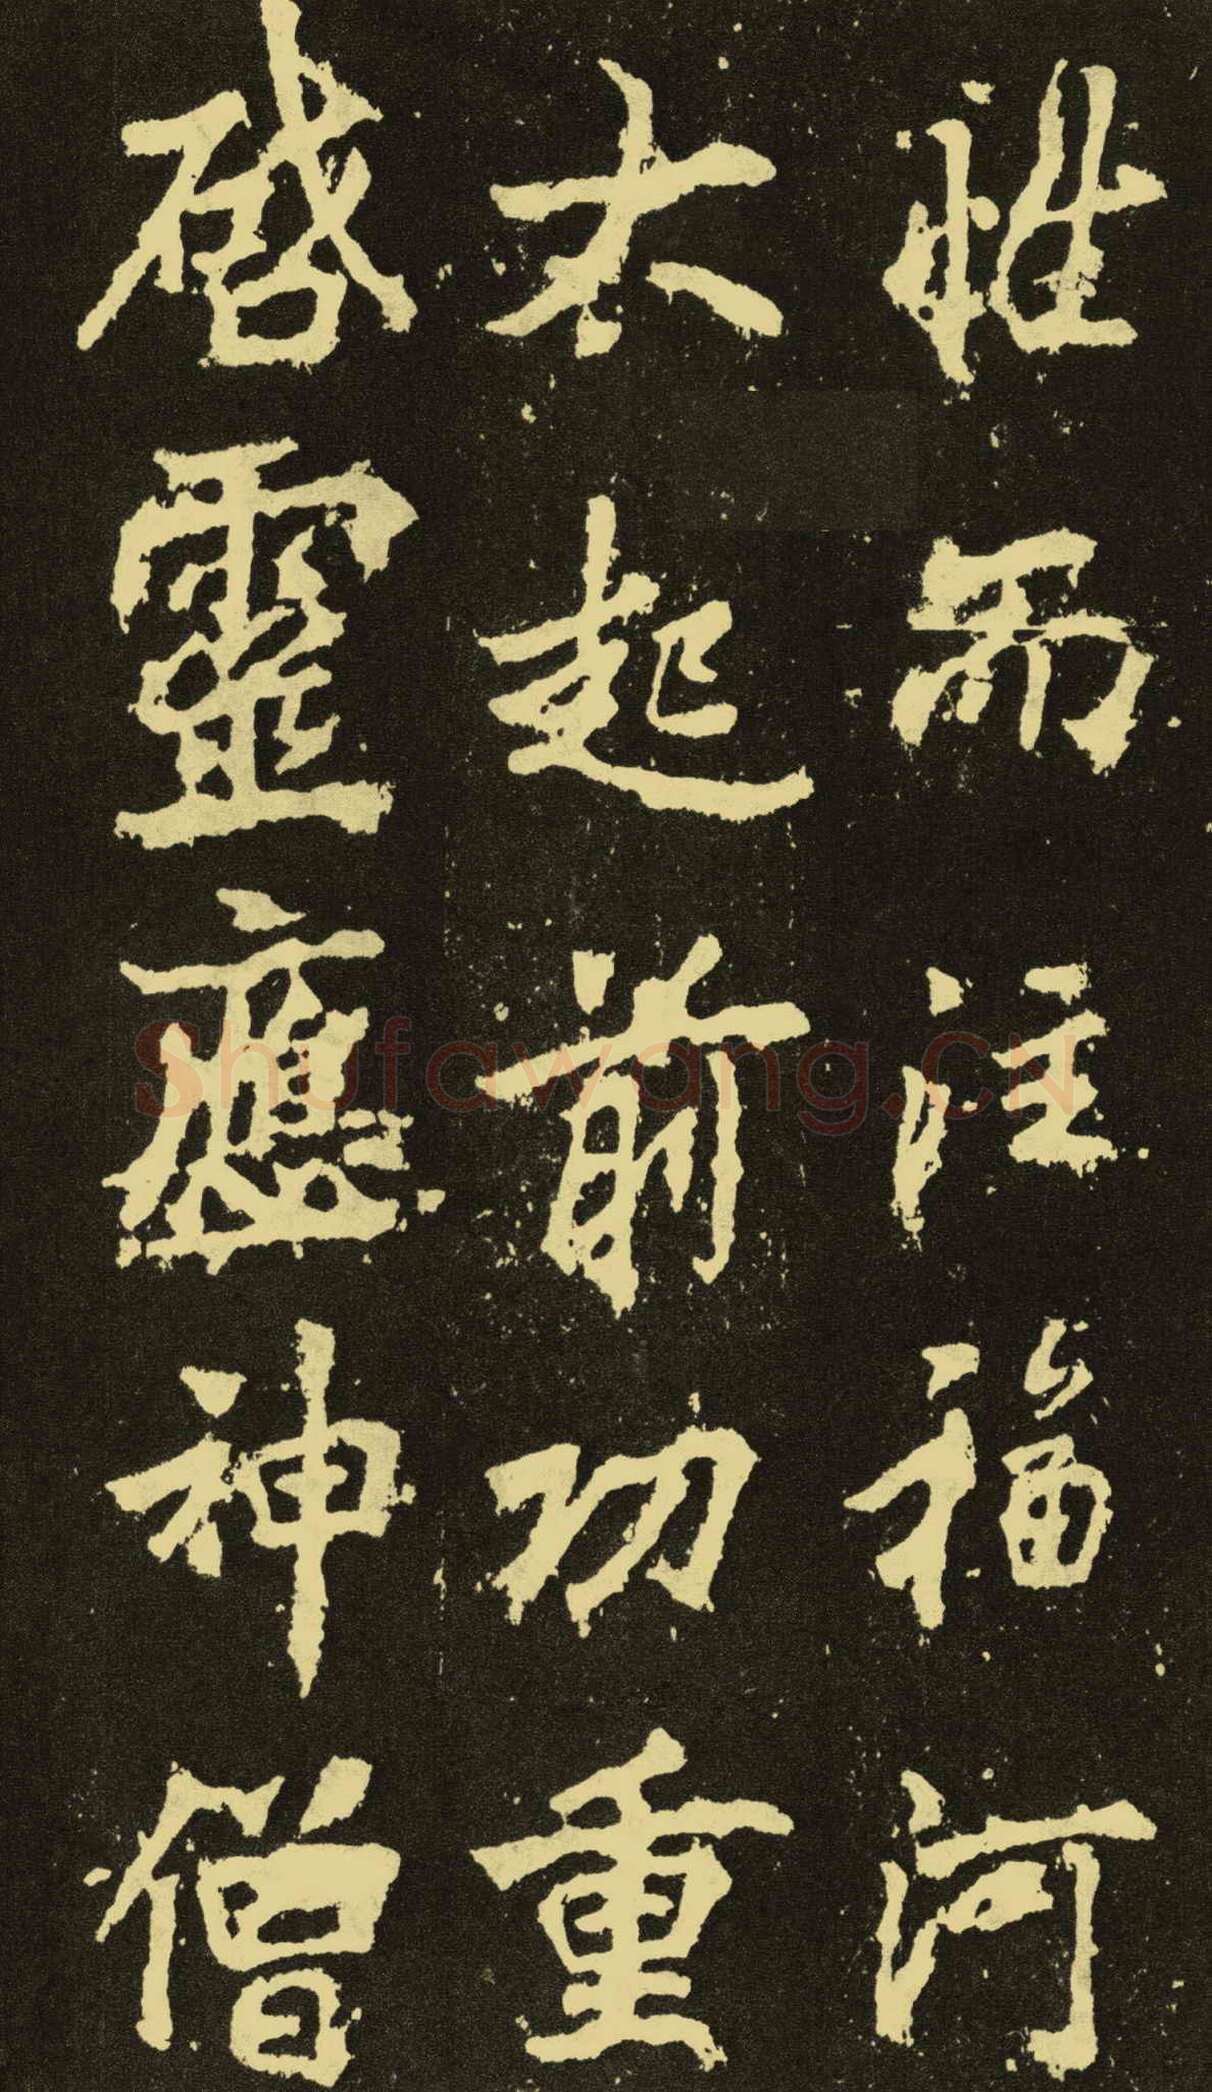 性而注福河
太起前功重
啓靈應神僧
Shufawang.CN